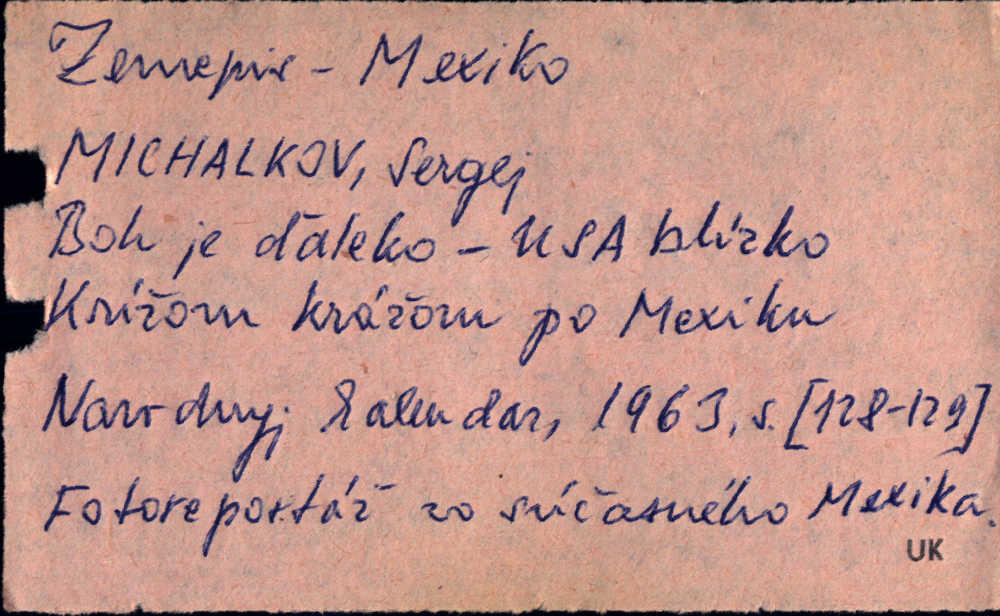 Zemepis - Mexiko
MICHALKOV, Sergej
Boh je ďaleko - USA blízko
Krížom krážom po Mexiku
Narodnyj kalendar, 1963, s. [128-129]
Fotoreportáž zo súčasného Mexika.
UK